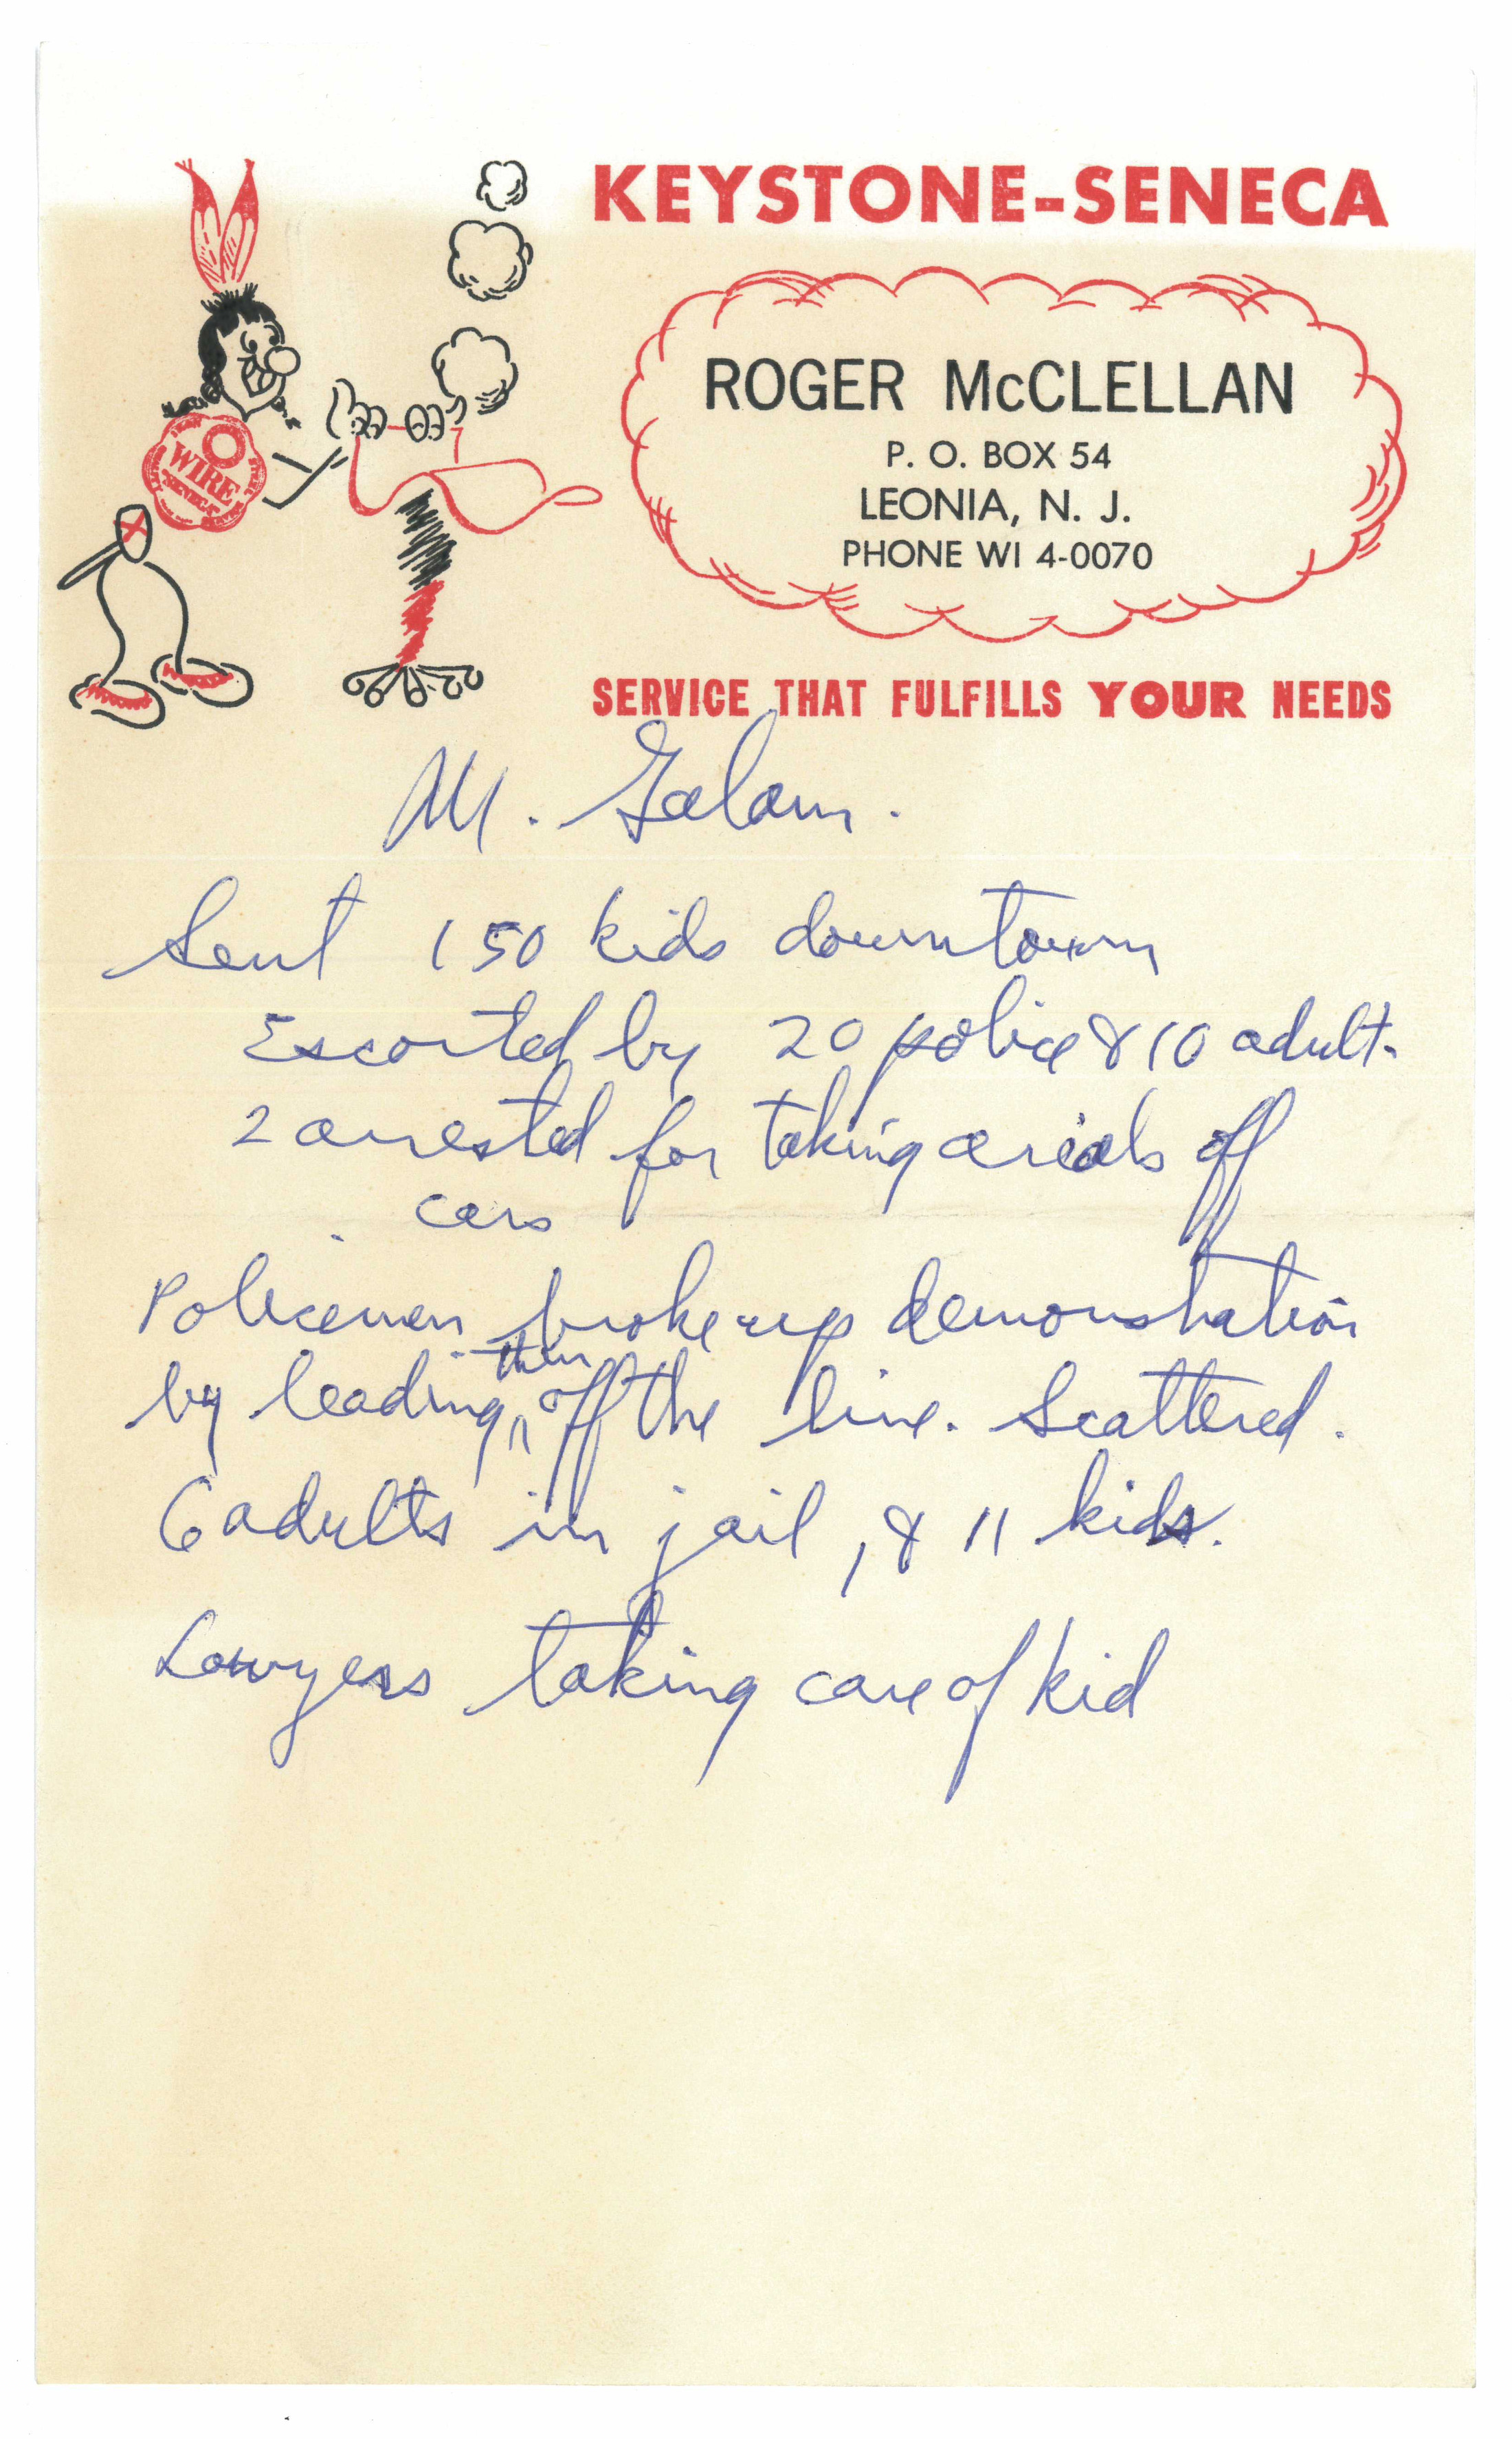 KEYSTONE-SENECA
ROGER McCLELLAN
P. O. BOX 54
LEONIA, N. J.
PHONE WI 4-0070
WIRE
SENECA
SERVICE THAT FULFILLS YOUR NEEDS
M. Galam.
Sent 150 kids downtown
Escorted by 20 police & 10 adult.
2 arrested for taking aerials off
cars
Policemen broke up demonstration
by leading them off the line. Scattered.
6 adults in jail, & 11 kids.
Lawyers taking care of kid